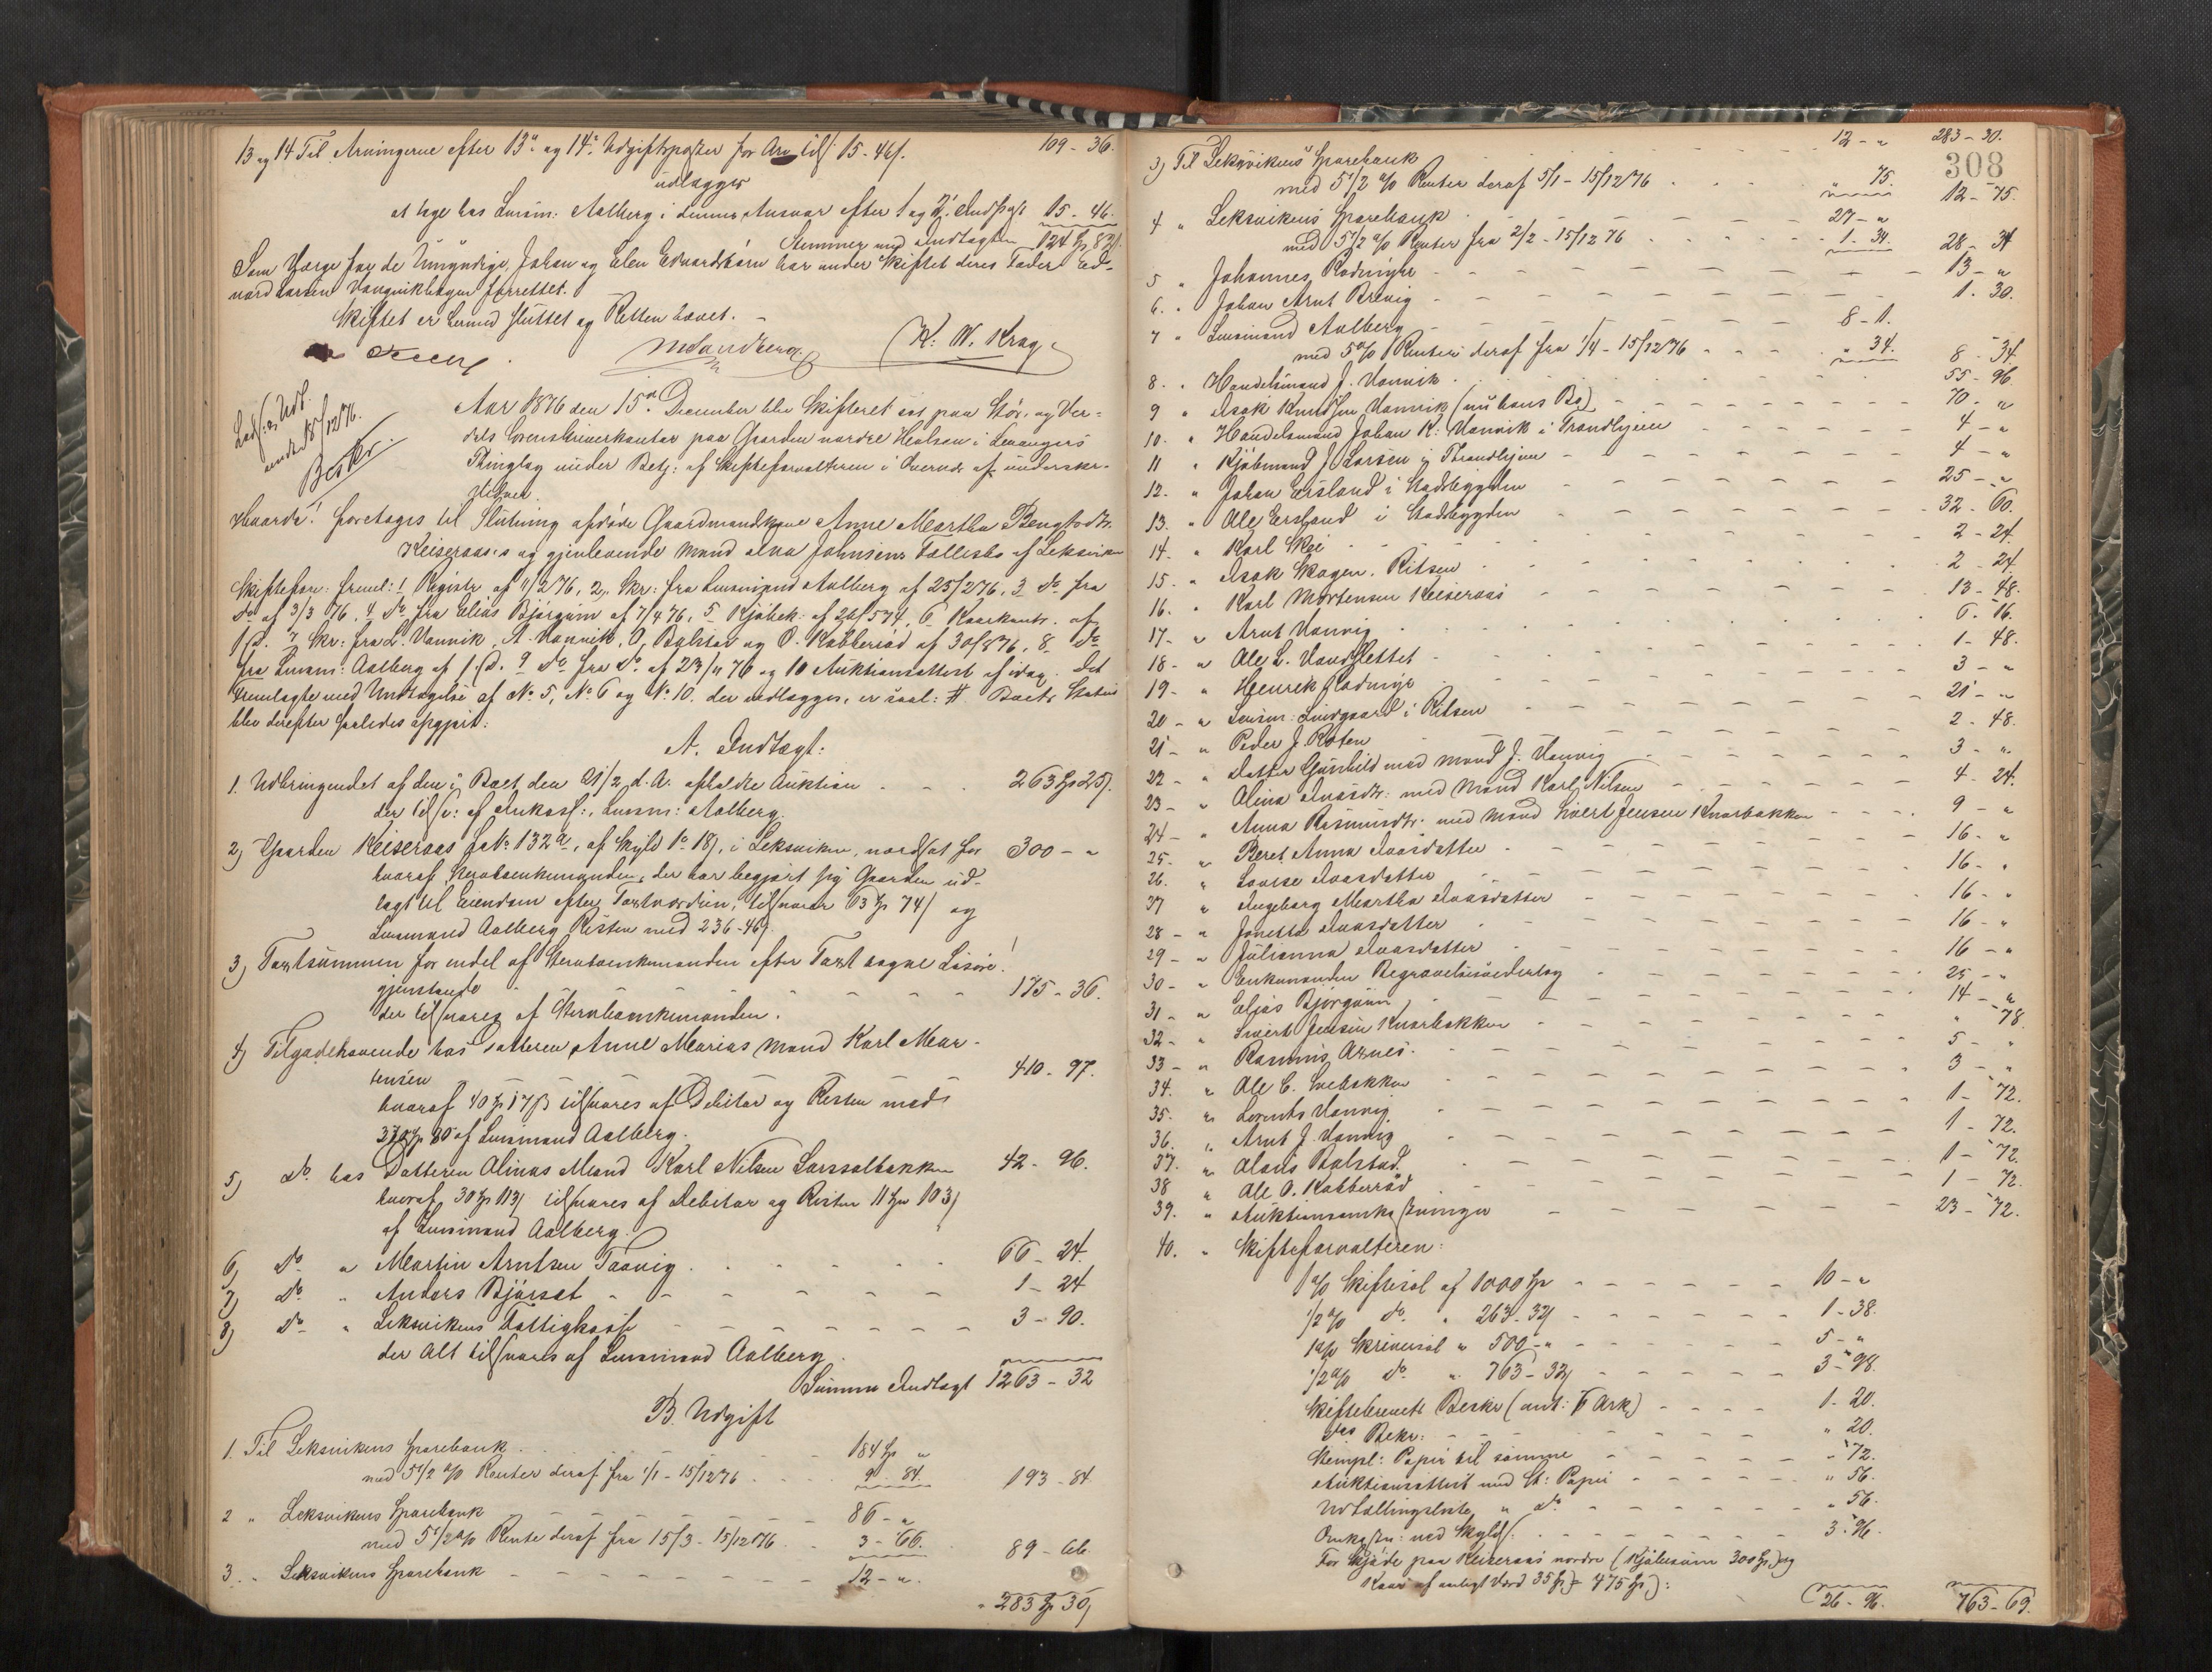 13 og 14 Til Arvingerne efter 13de og 14de Udgiftsposter for Arv tils: 15-46ß. 109-36.
udlægges
at tage hos Lensm: Aalberg i dennes Ansvar efter 1 og 2. Indtægt 15-46.
Stemmer med Indtægten 124 Sp 82ß.
Som Værge for de Umyndige, Johan og Elen Edvardsbørn har under Skiftet deres Fader Ed-
vard Larsen Vanvikhagen forrettet.
Skiftet er hermed sluttet og Retten hævet.
M Sandberg K. W. Krag
Beskr.
Aar 1876 den 15de December blev Skifteret sat paa Stør- og Ver-
dals Sorenskriverkontor paa Gaarden nordre Healsen i Levangers
Thinglag under Betj: af Skifteforvalteren i Overvær af underskr.
Vidner.
Hvorda! foretages til Slutning afdøde Gaardmandkone Anne Martha Bengtsdtr.
Keiseraas's og gjenlevende Mand Johnsens Fællesbo af Leksviken
Skifteforv: freml: 1 Registr. af 11/2 76, 2, Skr: fra Lensmand Aalberg af 25/2 76, 3 do fra
do af 3/3 76, 4 do fra Elias Bjørgum af 7/4 76, 5 Kjøbek: af 26/5 74, 6 Kaarkontr. af
s. D. 7 Skr: fra L. Vannvik, A. Vannvik, O. Balstad og O. Kobberrød af 30/8 76, 8 do
fra Lensm: Aalberg af s. D. 9 do fra do af 23/11 76 og 10 Auktionsattest af idag. Det
fremlagte med Undtagelse af No 5, No 6 og No 10, der vedlægges, er saal: # Boets Status
blev derefter saaledes opgjort:
A. Indtægt:
1. Udbringendet af den i Boet den 21/2 d. A. afholdte Auktion 263 Sp 25ß.
der tilsv: af Inkass:, Lensm: Aalberg.
2) Gaarden Keiseraas L.No 132a, af Skyld 1o 18ß, i Leksviken, vordsat for 300-"
hvoraf Stervboenkemanden, der har begjært sig Gaarden ud-
lagt til Eiendom efter Taxtværdien, tilsvarer 63 Sp 74ß og
Lensmand Aalberg Resten med 236-46ß.
3) Taxtsummen for endel af Stervboenkemanden efter Taxt tagne Løsøre!
gjenstande 175-36.
der tilsvares af Stervboenkemanden.
4) Tilgodehavende hos Datteren Anne Marias Mand Karl Mor-
tensen 410-97.
hvoraf 40 Sp 17ß tilsvares af Debitor og Resten med
370 Sp 80 af Lensmand Aalberg.
5) do hos Datteren Alinas Mand Karl Nilsen Larssalbakken 42-96.
hvoraf 30 Sp 113ß tilsvares af Debitor og Resten 11 Sp 103ß
af Lensmand Aalberg.
6) do " Martin Arntsen Vanvig 66-24.
7) do " Anders Bjørset 1-24
8) do " Leksvikens Fattigkasse 3-90.
der Alt tilsvares af Lensmand Aalberg.
Summa Indtægt 1263-32
B. Udgift
1. Til Leksvikens Sparebank 184 Sp "
med 5 1/2 % Renter deraf fra 1/1 - 15/12 76 9-84. 193-84
2 " Leksvikens Sparebank 86-"
med 5 1/2 % Rente deraf fra 15/3 - 15/12 76 3-66. 89-66
3. " Leksvikens Sparebank 12-".
283 Sp 30ß
12-" 283-30.
308
3) Til Leksvikens Sparebank
med 5 1/2 % Renter deraf 5/1 - 15/12 76 " 75. 12-75.
4 " Leksvikens Sparebank 27-"
med 5 1/2 % Renter fra 2/2 - 15/12 76 1-34. 28-34
5 " Johannes Rodmyhr 13-"
6. " Johan Arnt Brevig 1-30.
7 " Lensmand Aalberg 8-1.
med 5 % Renter deraf fra 1/4 - 15/12 76 " 34. 8-34.
8. " Handelsmand J. Vannvik 55-96.
9 " Isak Knudsen Vannvik (nu hans Bo) 70-"
10. " Handelsmand Johan K: Vannvik i Trondhjem 4-"
11 " Kjøbmand J. Larsen i Throndhjem 4-"
12. " Johan Ersland i Stadsbygden 25-"
13. " Ole Ersland i Stadsbygden 32-60.
14. " Karl Skei 2-24.
15. " Isak Skogen. Ritsen 2-24.
16. " Karl Mortensen Keiseraas 13-48.
17. " Arnt Vanvig 6-16.
18- " Ole L. Vandslettet 1-48.
19- " Henrik Rodmyr 3-"
20- " Lensm: Lindgaard i Ritsen 21-"
21- " Peder J. Koten 2-48.
22- " Datter Gunhild med Mand J. Vanvig 3-".
23- " Alina Aasdtr: med Mand Karl Nilsen 4-24.
24- " Anna Rasmusdtr. med Mand Sivert Jensen Knarbakken 9-"
25. " Beret Anna Aasdatter 16-"
26. " Lovise Aasdatter 16-"
27 " Ingeborg Martha Aasdatter 16-"
28- " Jonetta Aasdatter 16-"
29- " Julianna Aasdatter 16-"
30- " Enkemanden Begravelsesvederlag 25-"
31- " Elias Bjørgum 14-"
32- " Sivert Jensen Knarbakken " 78
33- " Rasmus Aznes. 5-"
34. " Ole C. Svebakken 3-"
35. " Lorents Vanvig 1-72.
36. " Arnt J. Vanvig 1-72.
37. " Olaus Balstad 1-72
38 " Ole O. Kobberrød 1-72.
39. " Auktionsomkostninger 23-72.
40. " Skifteforvalteren:
1 % Skiftesal af 1000 Sp 10-"
1/2 % do " 263-32ß 1-38.
1 % Skriversal " 500-" 5-"
1/2 % do " 763-32ß 3-98.
Skiftebrevets Beskr (ant: 6 Ark) 1-20.
Dets Bekr: " 20.
Stempl: Papir til samme " 72.
Auktionsattest med St: Papir " 56.
Udtællingsliste " do " 56.
Omkostn: ved Skylds. 3-96.
For Skjøde paa Keiseraas nordre (Kjøbesum 300 Sp) og
Kaar af aarligt Værd 35 Sp = 475 Sp):
26-96. 763-69.